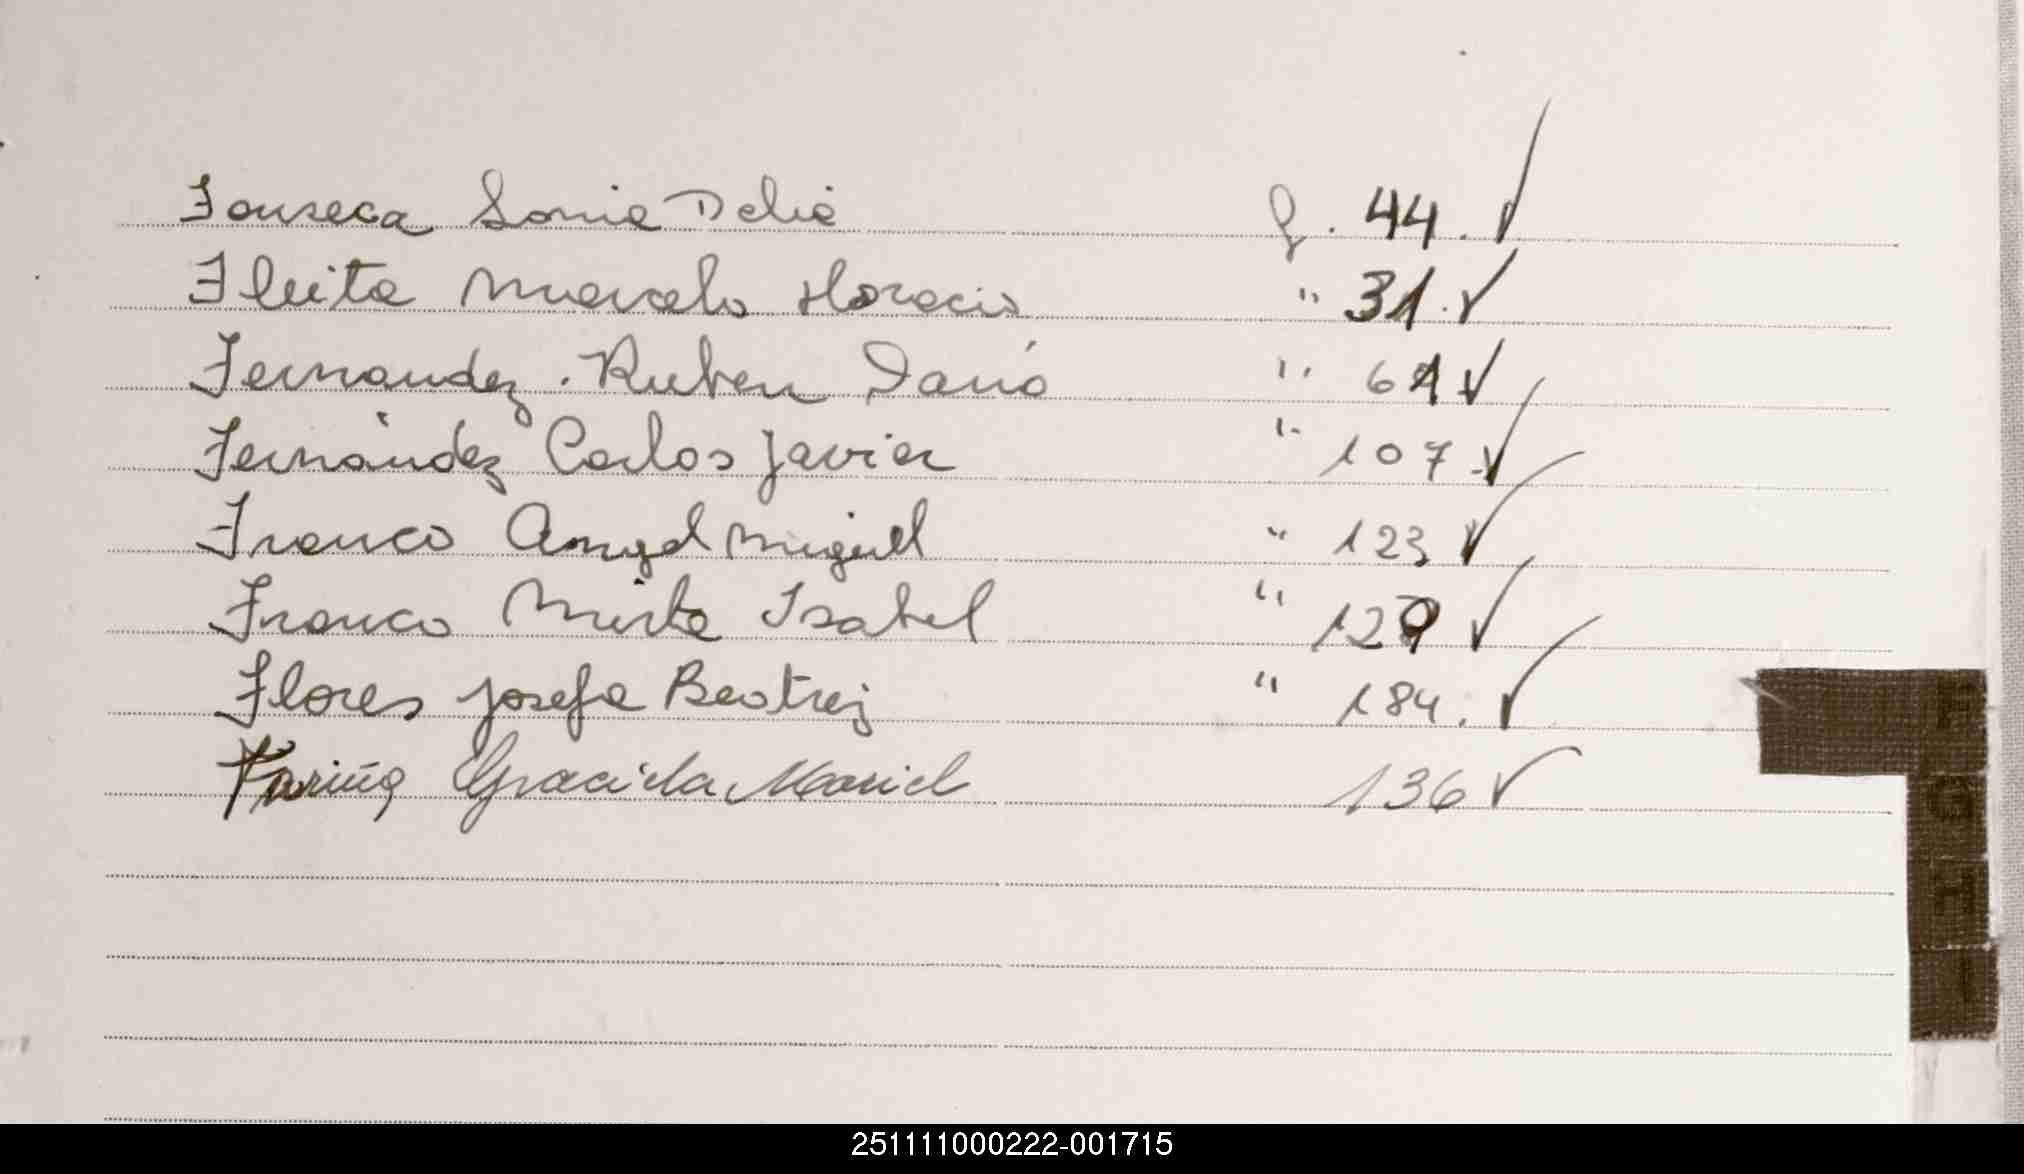 Fonseca Sonia Delia f. 44. ✓
Fleita Marcelo Horacio " 31. ✓
Fernandez . Ruben Darió " 61 ✓
Fernández Carlos Javier " 107 ✓
Franco Angel Miguel " 123 ✓
Franco Mirta Isabel " 129 ✓
Flores Josefa Beatriz " 184. ✓
Fariña Graciela Mariel 136 ✓
F
G
H
I
251111000222-001715